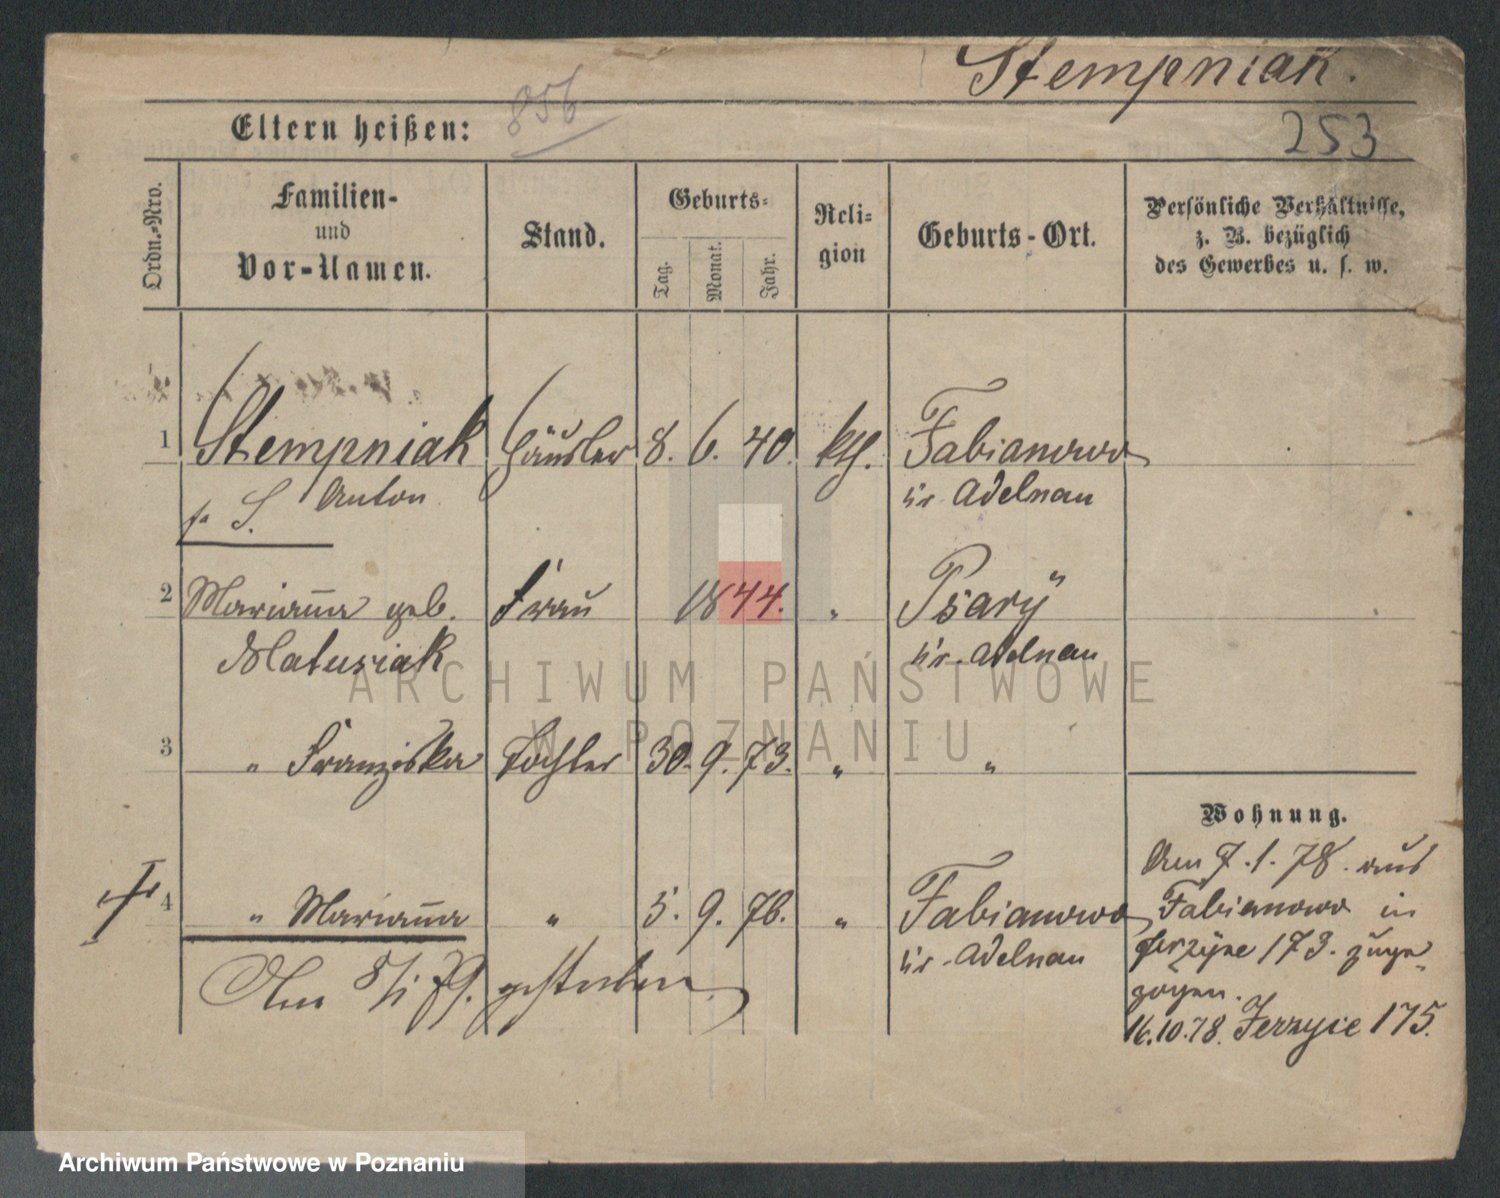 Stempniak.
856
253
Eltern heißen:
Ordn.-Nro.
Familien-
und
Vor-Namen.
Stand.
Geburts-
Tag.
Monat.
Jahr.
Reli-
gion
Geburts-Ort.
Persönliche Verhältnisse,
z. B. bezüglich
des Gewerbes u. s. w.
1 Stempniak Häusler 8. 6. 40. kth. Fabianowo
Anton Kr. Adelnau
2 Marianna geb. Frau 1844. " Psary
Matusiak Kr. Adelnau
3 " Franziska Tochter 30. 9. 73. " "
Wohnung.
4 " Marianna " 5. 9. 76. " Fabianowo
Kr. Adelnau
Am 8/1 79. gestorben
Am 7.1.78. aus
Fabianowo in
Jerzyce 173. zuge-
zogen.
16.10.78. Jerzyce 175.
ARCHIWUM PAŃSTWOWE
W POZNANIU
Archiwum Państwowe w Poznaniu